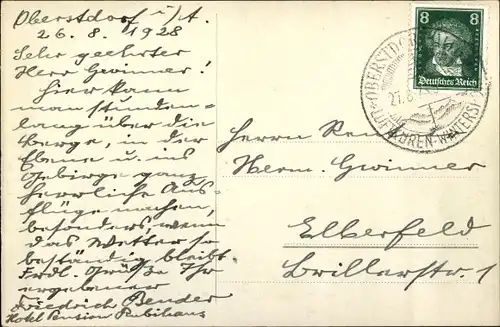 Oberstdorf i/A.
26. 8. 1928
Sehr geehrter
Herr Gwinner!
Hier kann
man stunden-
lang über die
Berge, in der
Ebene u. ins
Gebirge ganz
herrliche Aus-
flüge machen,
besonders, wenn
das Wetter so
beständig bleibt.
Frdl. Grüsse Ihr
ergebener
Friedrich Bender
Hotel Pension Rubihaus
8 8
Deutsches Reich
OBERSTDORF
27.8.
LUFTKUREN-WINTERSP
Herrn
Herm. Gwinner
Elberfeld
Brillerstr. 1